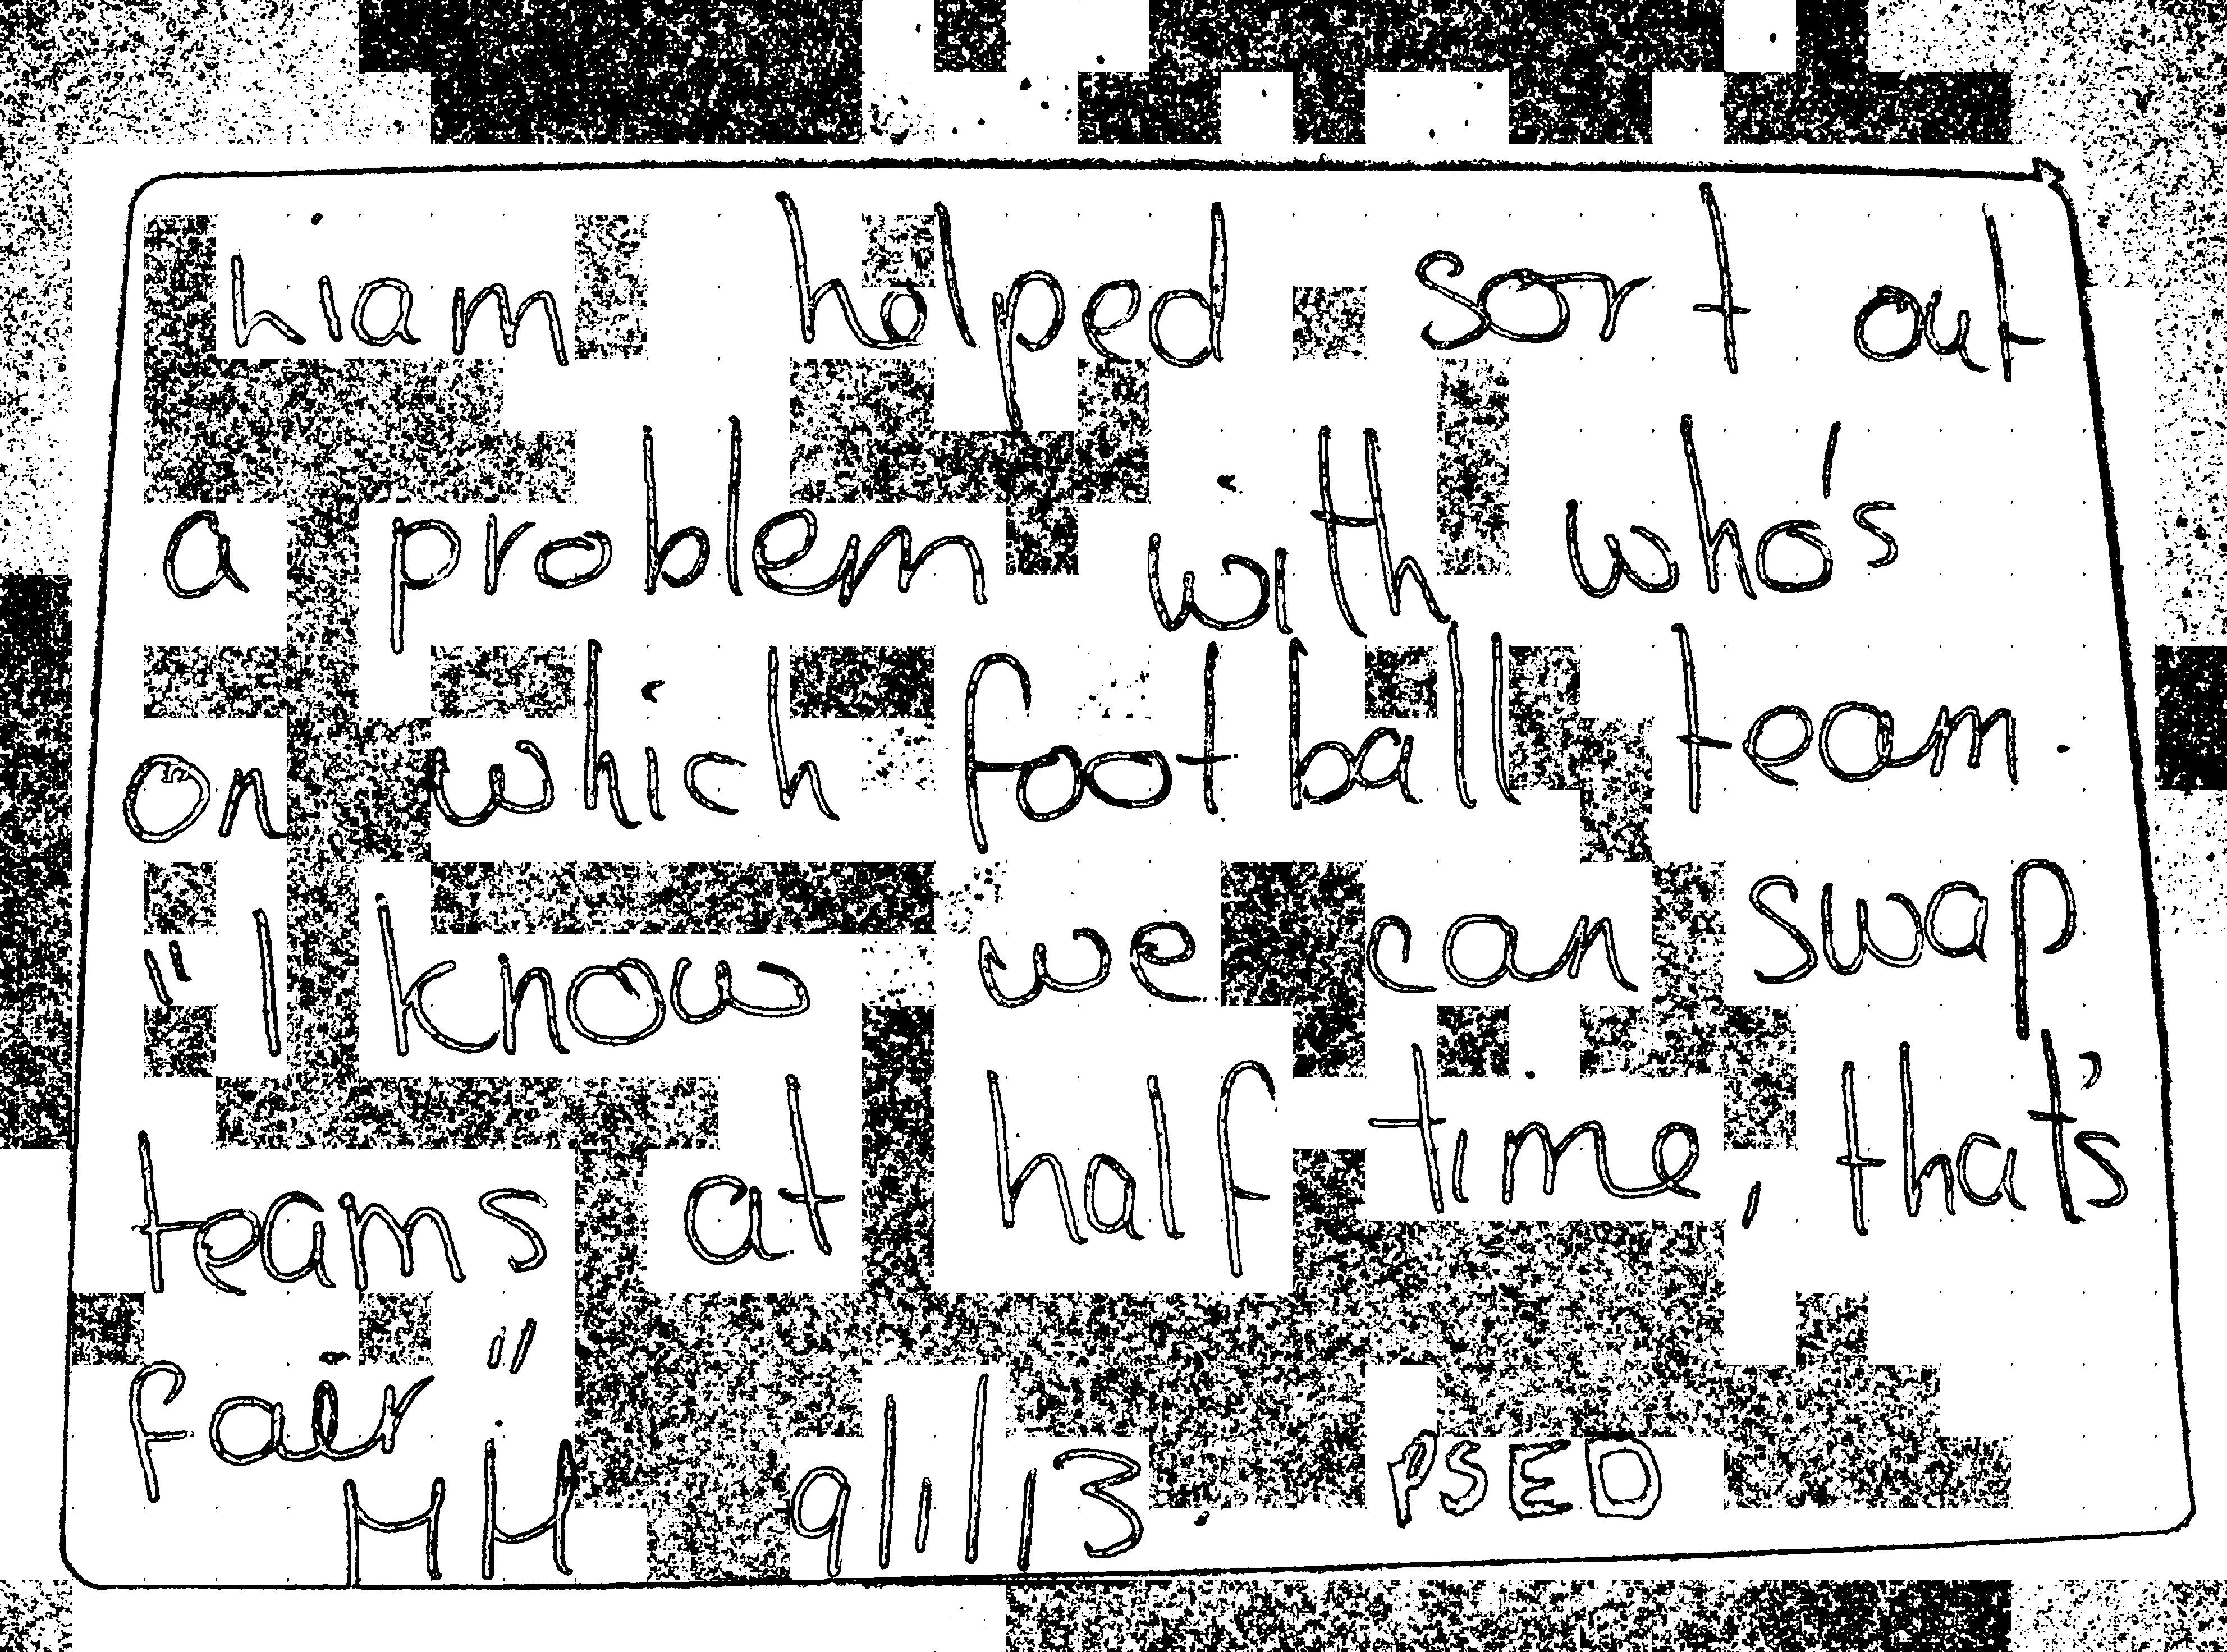 Liam helped sort out
a problem with who's
on which football team.
"I know we can swap
teams at half time, that's
fair"
MH 9/1/13 PSED